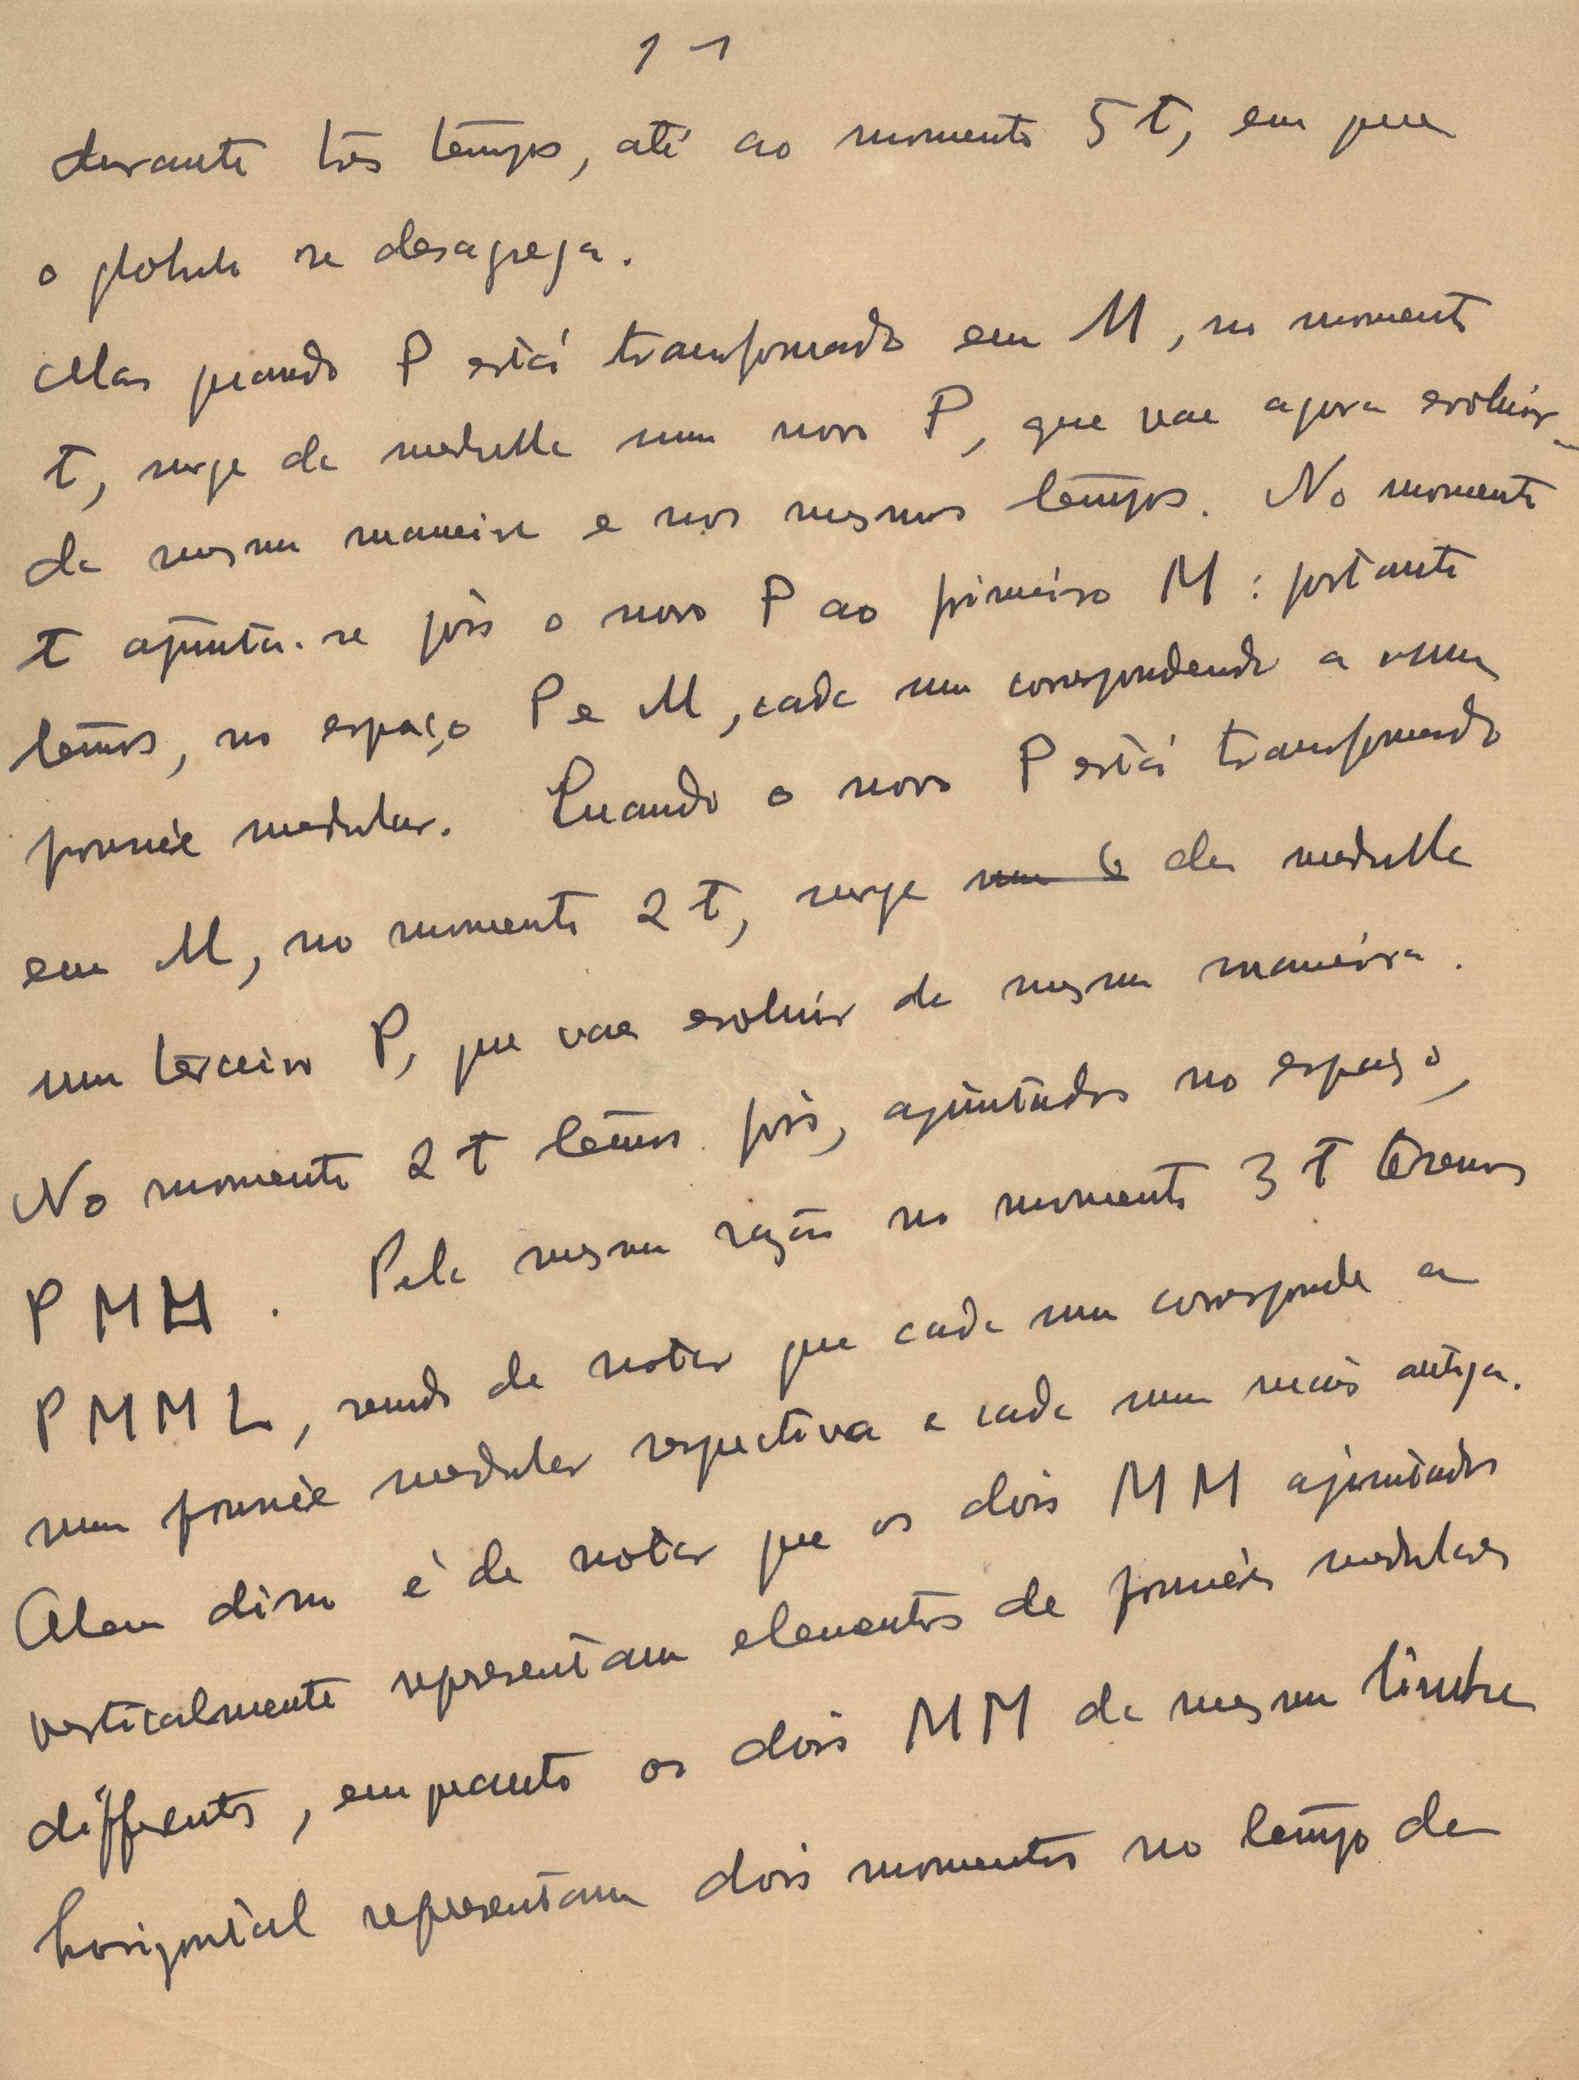 11
durante três tempos, até ao momento 5t, em que
o globulo se desagrega.
Mas quando P está transformado em M, no momento
t, surge da medulla um novo P, que vae agora evoluir
da mesma maneira e nos mesmos tempos. No momento
t ajunta-se pois o novo P ao primeiro M: portanto
temos, no espaço P e M, cada um correspondendo a uma
fournée medular. Quando o novo P está transformado
em M, no momento 2t, surge da medulla
um terceiro P, que vae evoluir da mesma maneira.
No momento 2t temos pois, ajuntados no espaço,
PMM. Pela mesma razão no momento 3t teremos
PMML, sendo de notar que cada um corresponde a
uma fournée medular respectiva e cada um mais antiga.
Alem disso é de notar que os dois MM ajuntados
verticalmente representam elementos de fournées medulares
differentes, emquanto os dois MM da mesma linha
horizontal representam dois momentos no tempo da